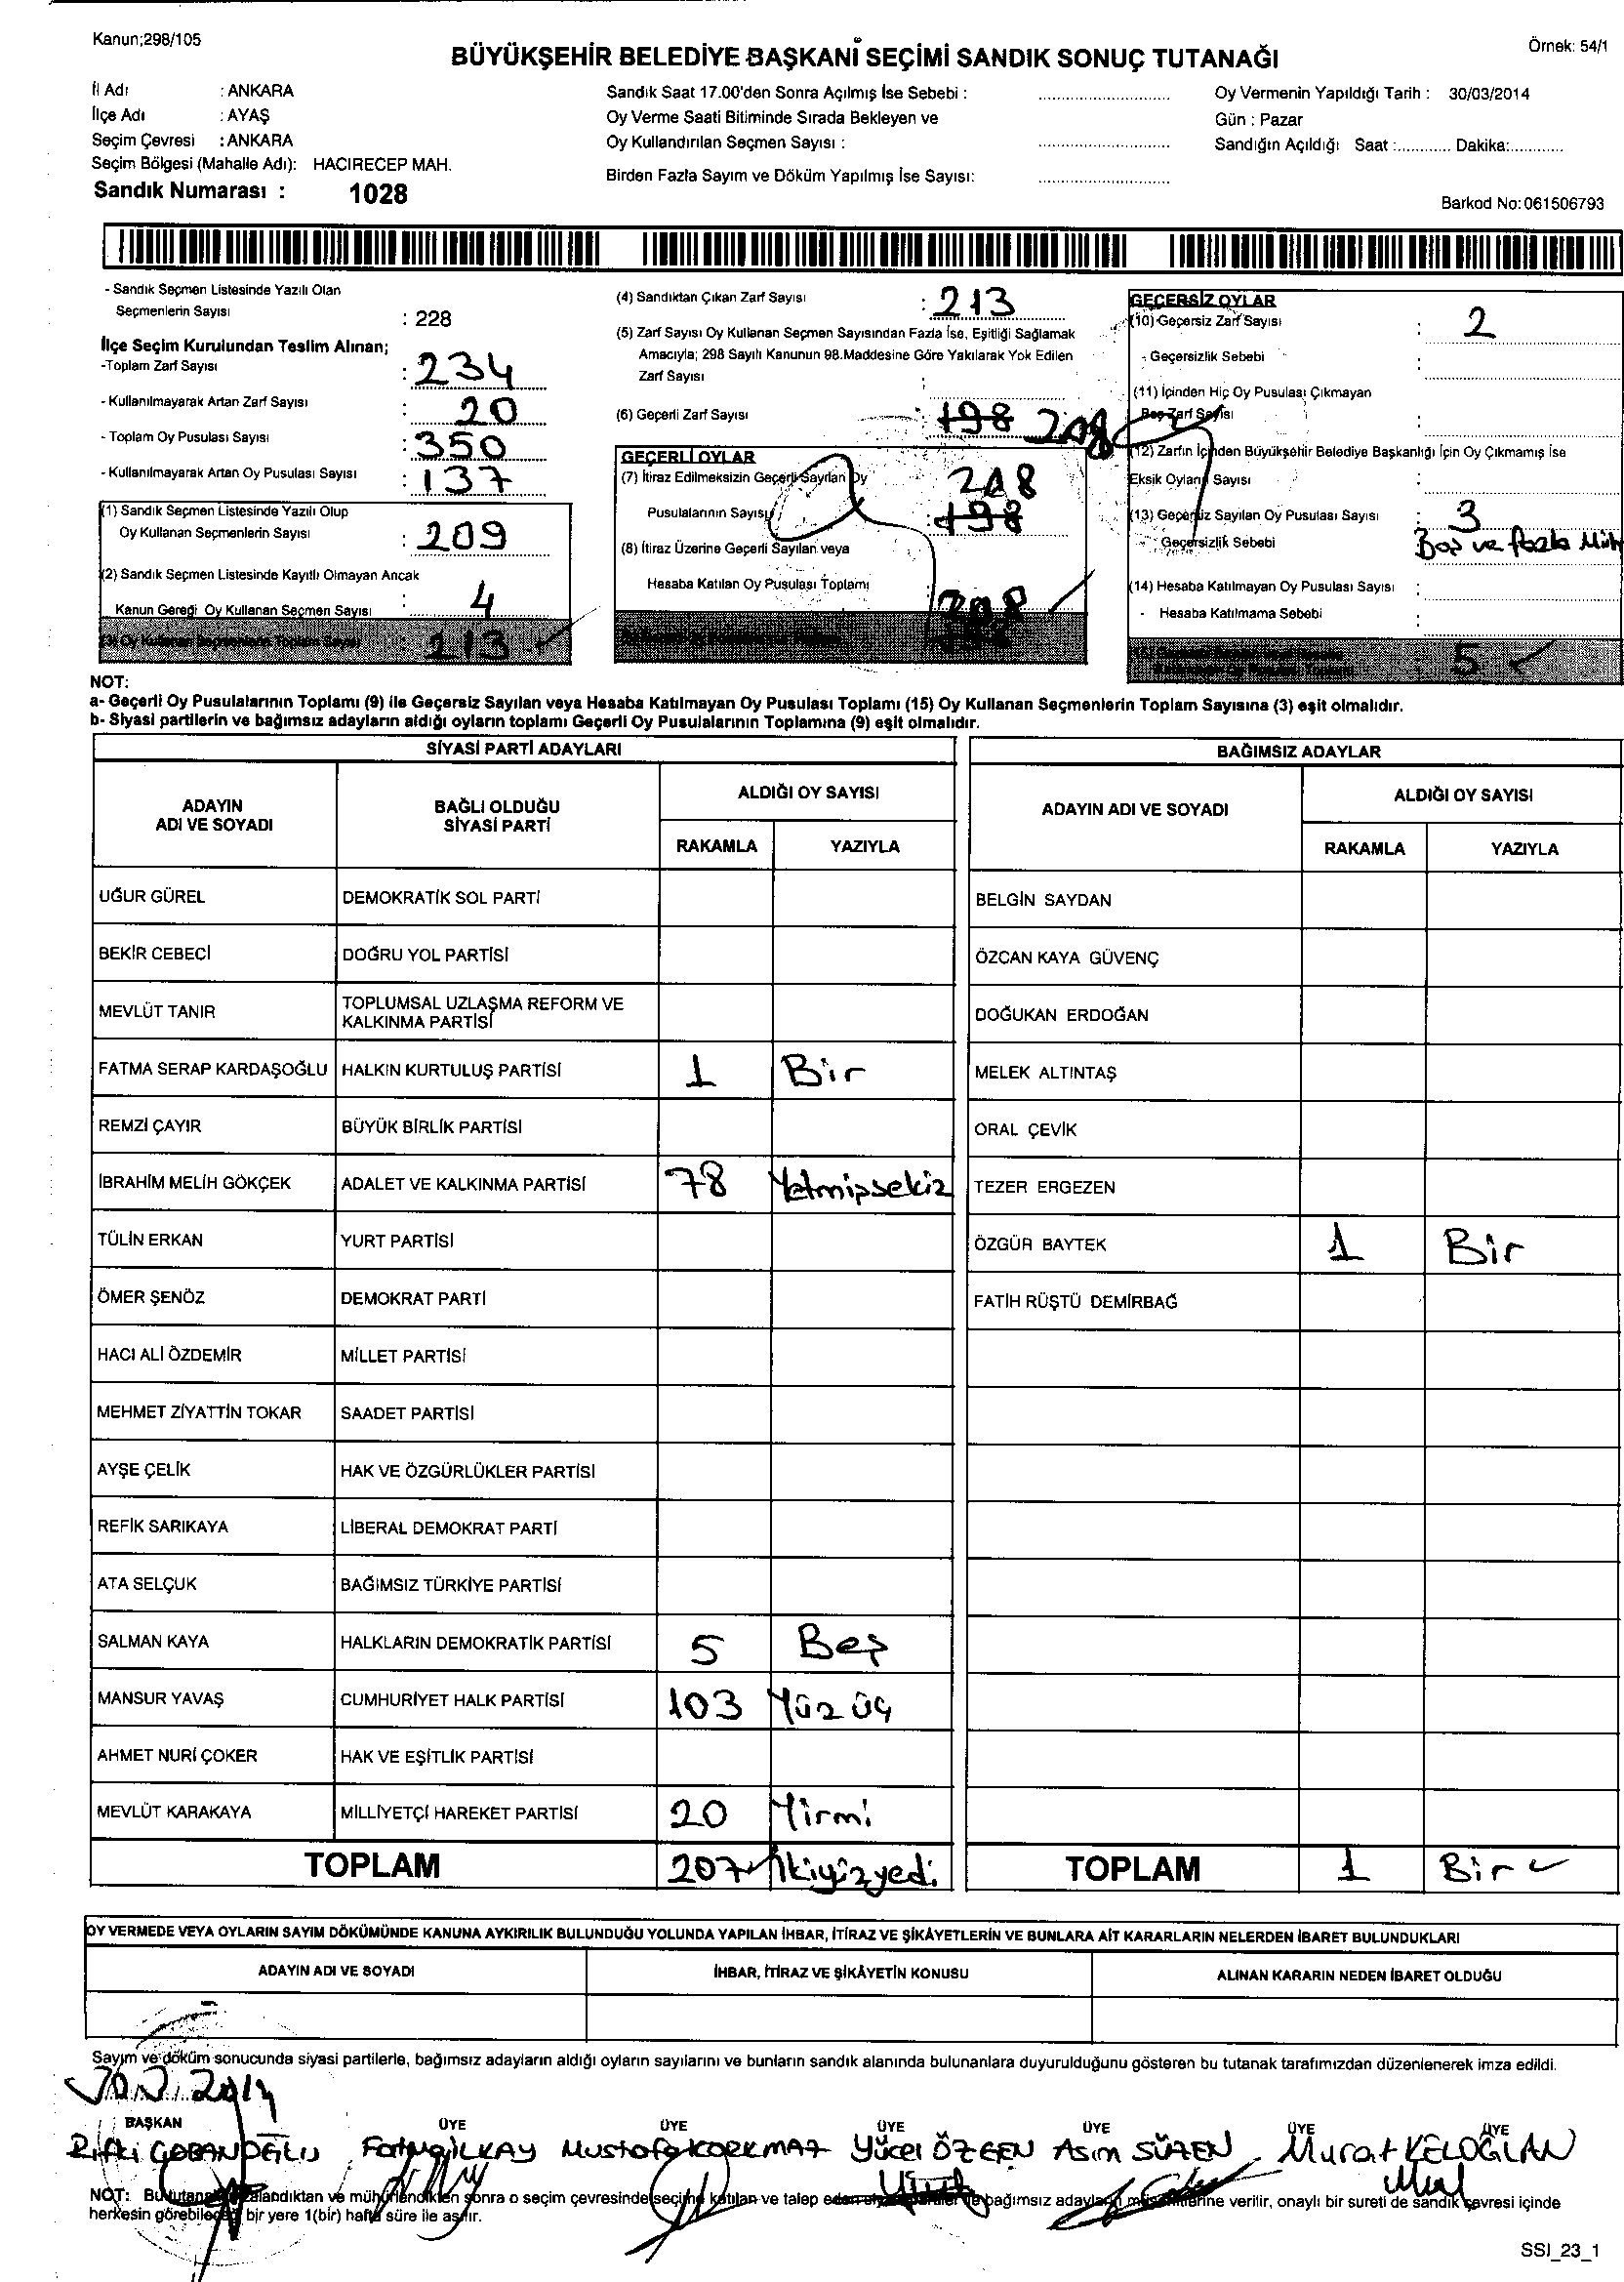 Kanun;298/105
BÜYÜKŞEHİR BELEDİYE BAŞKANİ SEÇİMİ SANDIK SONUÇ TUTANAĞI
Örnek: 54/1
İl Adı : ANKARA
İlçe Adı : AYAŞ
Seçim Çevresi : ANKARA
Seçim Bölgesi (Mahalle Adı): HACIRECEP MAH.
Sandık Numarası : 1028
Sandık Saat 17.00'den Sonra Açılmış İse Sebebi :
Oy Verme Saati Bitiminde Sırada Bekleyen ve
Oy Kullandırılan Seçmen Sayısı :
Birden Fazla Sayım ve Döküm Yapılmış İse Sayısı:
Oy Vermenin Yapıldığı Tarih : 30/03/2014
Gün : Pazar
Sandığın Açıldığı Saat :........... Dakika:...........
Barkod No:061506793
- Sandık Seçmen Listesinde Yazılı Olan
Seçmenlerin Sayısı : 228
İlçe Seçim Kurulundan Teslim Alınan;
-Toplam Zarf Sayısı : 234
- Kullanılmayarak Artan Zarf Sayısı : 20
- Toplam Oy Pusulası Sayısı : 350
- Kullanılmayarak Artan Oy Pusulası Sayısı : 137
(1) Sandık Seçmen Listesinde Yazılı Olup
Oy Kullanan Seçmenlerin Sayısı : 209
(2) Sandık Seçmen Listesinde Kayıtlı Olmayan Ancak
Kanun Gereği Oy Kullanan Seçmen Sayısı : 4
(3) Oy Kullanan Seçmenlerin Toplam Sayısı : 213
(4) Sandıktan Çıkan Zarf Sayısı : 213
(5) Zarf Sayısı Oy Kullanan Seçmen Sayısından Fazla İse, Eşitliği Sağlamak
Amacıyla; 298 Sayılı Kanunun 98.Maddesine Göre Yakılarak Yok Edilen
Zarf Sayısı :
(6) Geçerli Zarf Sayısı : 198 208
GEÇERLİ OYLAR
(7) İtiraz Edilmeksizin Geçerli Sayılan Oy 208
Pusulalarının Sayısı : 198
(8) İtiraz Üzerine Geçerli Sayılan veya
Hesaba Katılan Oy Pusulası Toplamı
208
198
GEÇERSİZ OYLAR
(10) Geçersiz Zarf Sayısı : 2
- Geçersizlik Sebebi :
(11) İçinden Hiç Oy Pusulası Çıkmayan
Boş Zarf Sayısı :
(12) Zarfın İçinden Büyükşehir Belediye Başkanlığı İçin Oy Çıkmamış İse
Eksik Oyların Sayısı :
(13) Geçersiz Sayılan Oy Pusulası Sayısı : 3
- Geçersizlik Sebebi : Boş ve fazla Müh
(14) Hesaba Katılmayan Oy Pusulası Sayısı :
- Hesaba Katılmama Sebebi :
5
NOT:
a- Geçerli Oy Pusulalarının Toplamı (9) ile Geçersiz Sayılan veya Hesaba Katılmayan Oy Pusulası Toplamı (15) Oy Kullanan Seçmenlerin Toplam Sayısına (3) eşit olmalıdır.
b- Siyasi partilerin ve bağımsız adayların aldığı oyların toplamı Geçerli Oy Pusulalarının Toplamına (9) eşit olmalıdır.
SİYASİ PARTİ ADAYLARI
ADAYIN ADI VE SOYADI BAĞLI OLDUĞU SİYASİ PARTİ ALDIĞI OY SAYISI
RAKAMLA YAZIYLA
UĞUR GÜREL DEMOKRATİK SOL PARTİ
BEKİR CEBECİ DOĞRU YOL PARTİSİ
MEVLÜT TANIR TOPLUMSAL UZLAŞMA REFORM VE KALKINMA PARTİSİ
FATMA SERAP KARDAŞOĞLU HALKIN KURTULUŞ PARTİSİ 1 Bir
REMZİ ÇAYIR BÜYÜK BİRLİK PARTİSİ
İBRAHİM MELİH GÖKÇEK ADALET VE KALKINMA PARTİSİ 78 Yetmişsekiz
TÜLİN ERKAN YURT PARTİSİ
ÖMER ŞENÖZ DEMOKRAT PARTİ
HACI ALİ ÖZDEMİR MİLLET PARTİSİ
MEHMET ZİYATTİN TOKAR SAADET PARTİSİ
AYŞE ÇELİK HAK VE ÖZGÜRLÜKLER PARTİSİ
REFİK SARIKAYA LİBERAL DEMOKRAT PARTİ
ATA SELÇUK BAĞIMSIZ TÜRKİYE PARTİSİ
SALMAN KAYA HALKLARIN DEMOKRATİK PARTİSİ 5 Beş
MANSUR YAVAŞ CUMHURİYET HALK PARTİSİ 103 Yüz üç
AHMET NURİ ÇOKER HAK VE EŞİTLİK PARTİSİ
MEVLÜT KARAKAYA MİLLİYETÇİ HAREKET PARTİSİ 20 Yirmi
TOPLAM 207 İkiyüzyedi
BAĞIMSIZ ADAYLAR
ADAYIN ADI VE SOYADI ALDIĞI OY SAYISI
RAKAMLA YAZIYLA
BELGİN SAYDAN
ÖZCAN KAYA GÜVENÇ
DOĞUKAN ERDOĞAN
MELEK ALTINTAŞ
ORAL ÇEVİK
TEZER ERGEZEN
ÖZGÜR BAYTEK 1 Bir
FATİH RÜŞTÜ DEMİRBAĞ
TOPLAM 1 Bir
OY VERMEDE VEYA OYLARIN SAYIM DÖKÜMÜNDE KANUNA AYKIRILIK BULUNDUĞU YOLUNDA YAPILAN İHBAR, İTİRAZ VE ŞİKÂYETLERİN VE BUNLARA AİT KARARLARIN NELERDEN İBARET BULUNDUKLARI
ADAYIN ADI VE SOYADI İHBAR, İTİRAZ VE ŞİKÂYETİN KONUSU ALINAN KARARIN NEDEN İBARET OLDUĞU
Sayım ve döküm sonucunda siyasi partilerle, bağımsız adayların aldığı oyların sayılarını ve bunların sandık alanında bulunanlara duyurulduğunu gösteren bu tutanak tarafımızdan düzenlenerek imza edildi.
2014
BAŞKAN ÜYE ÜYE ÜYE ÜYE ÜYE ÜYE
Rıfkı ÇOBANOĞLU Fatma İLKAY Mustafa KORKMAZ Yücel ÖZGEN Asım SÜZEN Murat KELOĞLAN
NOT: Bu tutanak imzalandıktan ve mühürlendikten sonra o seçim çevresinde seçime katılan ve talep eden siyasi partiler ile bağımsız adayların müşahitlerine verilir, onaylı bir sureti de sandık çevresi içinde
herkesin görebileceği bir yere 1(bir) hafta süre ile asılır.
SSI_23_1